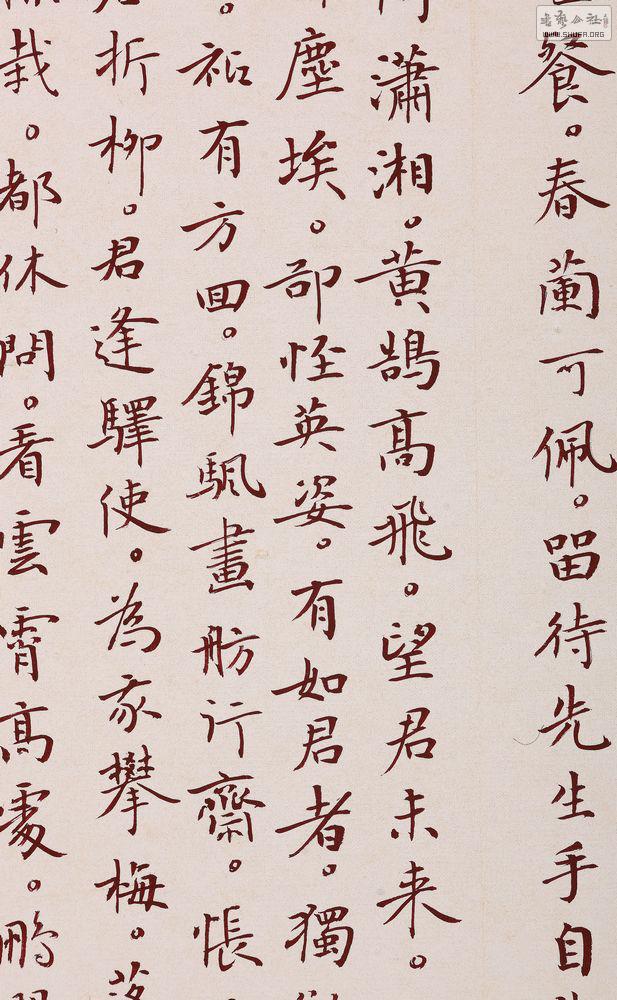 書藝公社
WWW.SHUFA.ORG
餐。春蘭可佩。留待先生手自
瀟湘。黃鵠高飛。望君未来。
塵埃。卻怪英姿。有如君者。獨
有方回。錦颿畫舫行齋。悵
折柳。君逢驛使。為我攀梅。落
栽。都休問。看雲霄高處。鵬